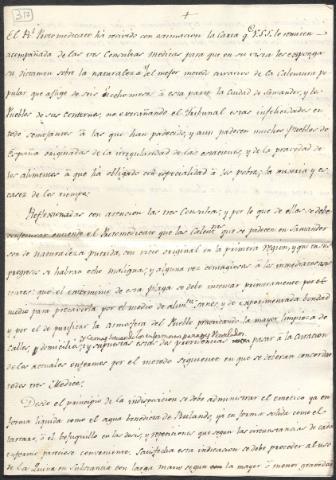 317
+
El Rl. Protomedicato ha recivido con estimacion la Carta qe. V.S.S. le remiten
acompañada de las tres Consultas Medicas para que en su vista les esponga
su dictamen sobre la naturaleza y el mejor metodo curativo de la Calentura po
pular que aflige de seis u ocho meses à esta parte la Ciudad de Santander, y los
Pueblos de sus contornos, no extrañando el Tribunal estas infelicidades en
todo semejantes à las que han padecido, y aun padecen muchos Pueblos de
España originadas de la irregularidad de las estaciones, y de la pravedad de
los alimentos à que ha obligado con especialidad à los pobres, la miseria y es
casez de los tiempos.
Reflexionadas con atencion las tres Consultas, y por lo que de ellas se debe
el Protomedicato que las Calenturas que se padecen en Santander
son de naturaleza putrida, con vicio original en la primera region, y que en sus
progresos se habran echo malignas, y alguna vez contagiosas à los inmediatos
que el exterminio de esta plaga se debe intentar primeramente por el
medio para precaverla por el medio de alimtos. sanos, y de experimentada bondad
y por el de purificar la atmosfera del Pueblo promoviendo la mayor limpieza de
calles y domicilios; y supuestas estas dos providencias pasar à la curacion
de los actuales enfermos por el metodo siguiente en que se deberan concordar
todos tres Medicos.
Desde el principio de la indisposicion se debe administrar el emetico ya en
forma liquida como el agua benedicta de Rulando, ya en forma solida como el
tartaro, ó el bejuquillo en las dosis, y repeticiones que segun las circunstancias de cada
enfermo pareciese conveniente. Satisfecha esta indicacion se debe proceder al uso
de la Quina en substancia con larga mano segun la mayor ó menor gravedad